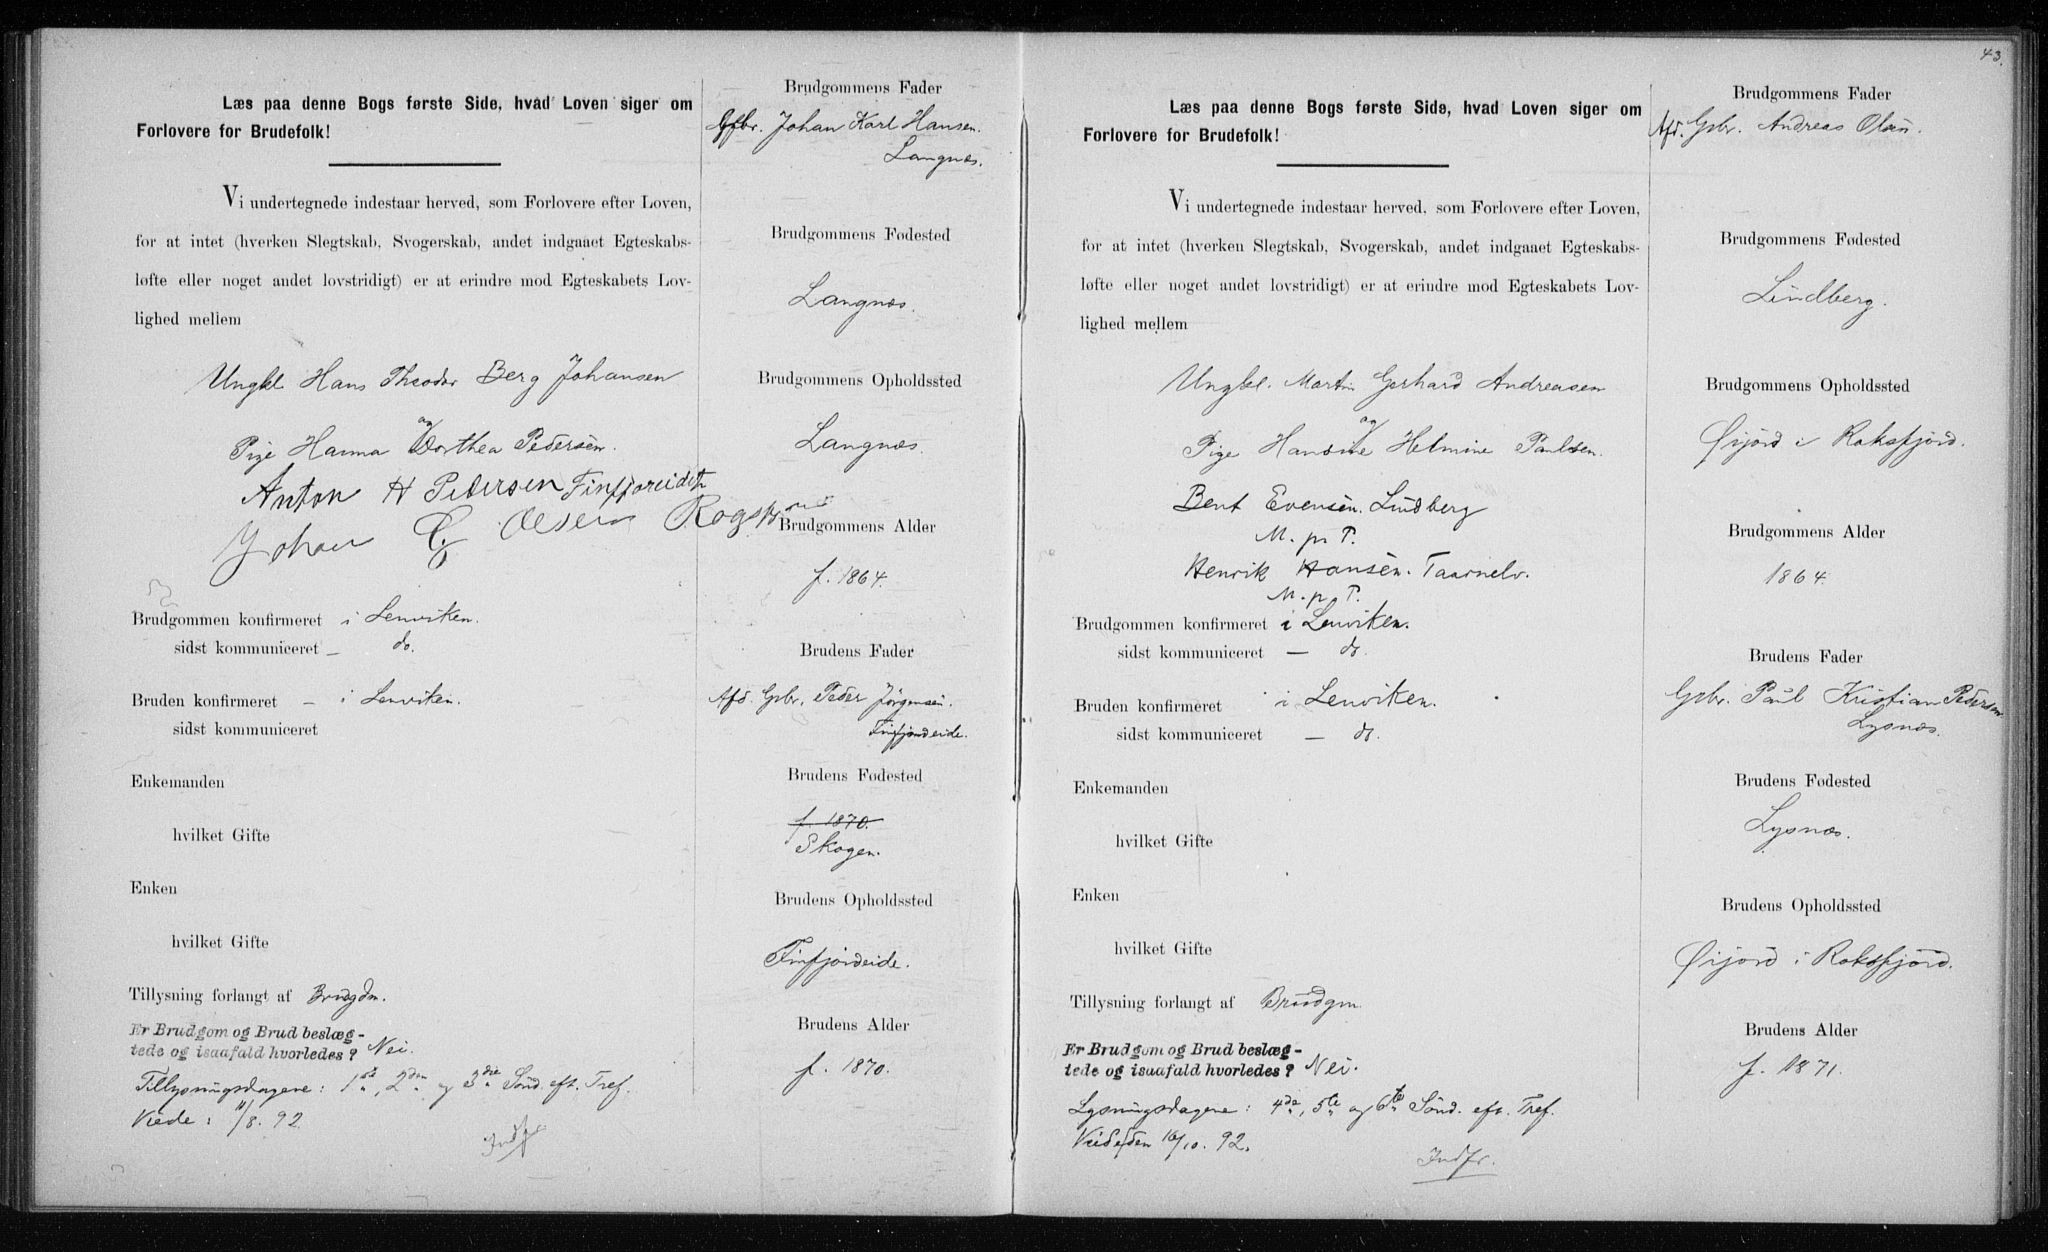 Læs paa denne Bogs første Side, hvad Loven siger om
Forlovere for Brudefolk!
Vi undertegnede indestaar herved, som Forlovere efter Loven,
for at intet (hverken Slegtskab, Svogerskab, andet indgaaet Egteskabs-
løfte eller noget andet lovstridigt) er at erindre mod Egteskabets Lov-
lighed mellem
Ungkl Hans Theodor Berg Johansen
og
Pige Hanna Dorthea Pedersen.
Anton H Pedersen Finfjoreidet
Johan
Brudgommen konfirmeret i Lenviken.
sidst kommuniceret — do.
Bruden konfirmeret — i Lenviken.
sidst kommuniceret
Enkemanden
hvilket Gifte
Enken
hvilket Gifte
Tillysning forlangt af Brudgdm.
Er Brudgom og Brud beslæg-
tede og isaafald hvorledes? Nei.
Tillysningsdagene: 1ste, 2den og 3die Sönd. eft. Tref.
Viede: 11/8. 92
Indf
Brudgommens Fader
Gbr. Johan Karl Hansen.
Langnæs.
Brudgommens Fødested
Langnæs.
Brudgommens Opholdssted
Langnæs.
Brudgommens Alder
f. 1864.
Brudens Fader
Afd. Gbr. Peder Jörgensen.
Finfjordeide.
Brudens Fødested
f. 1870.
Skogen.
Brudens Opholdssted
Finfjordeide.
Brudens Alder
f. 1870.
43.
Læs paa denne Bogs første Side, hvad Loven siger om
Forlovere for Brudefolk!
Vi undertegnede indestaar herved, som Forlovere efter Loven,
for at intet (hverken Slegtskab, Svogerskab, andet indgaaet Egteskabs-
løfte eller noget andet lovstridigt) er at erindre mod Egteskabets Lov-
lighed mellem
Ungkl. Martin Gerhard Andreasen
og
Pige Hansine Helmine Paulsen.
Bent Evensen. Lindberg
M. p. P.
Henrik Hansen. Taarnelv.
M. p. P.
Brudgommen konfirmeret i Lenviken.
sidst kommuniceret — do.
Bruden konfirmeret i Lenviken.
sidst kommuniceret — do.
Enkemanden
hvilket Gifte
Enken
hvilket Gifte
Tillysning forlangt af Brudgm
Er Brudgom og Brud beslæg-
tede og isaafald hvorledes? Nei.
Lysningsdagene: 4de, 5te og 6te Sönd. eft. Tref.
Viede den 16/10. 92.
Indfr.
Brudgommens Fader
Afd. Gbr. Andreas Olsen.
Brudgommens Fødested
Lindberg.
Brudgommens Opholdssted
Örjord i Roksfjord.
Brudgommens Alder
1864.
Brudens Fader
Gbr. Paul Kristian Pedersen
Lysnæs.
Brudens Fødested
Lysnæs.
Brudens Opholdssted
Örjord i Roksfjord.
Brudens Alder
f. 1871.